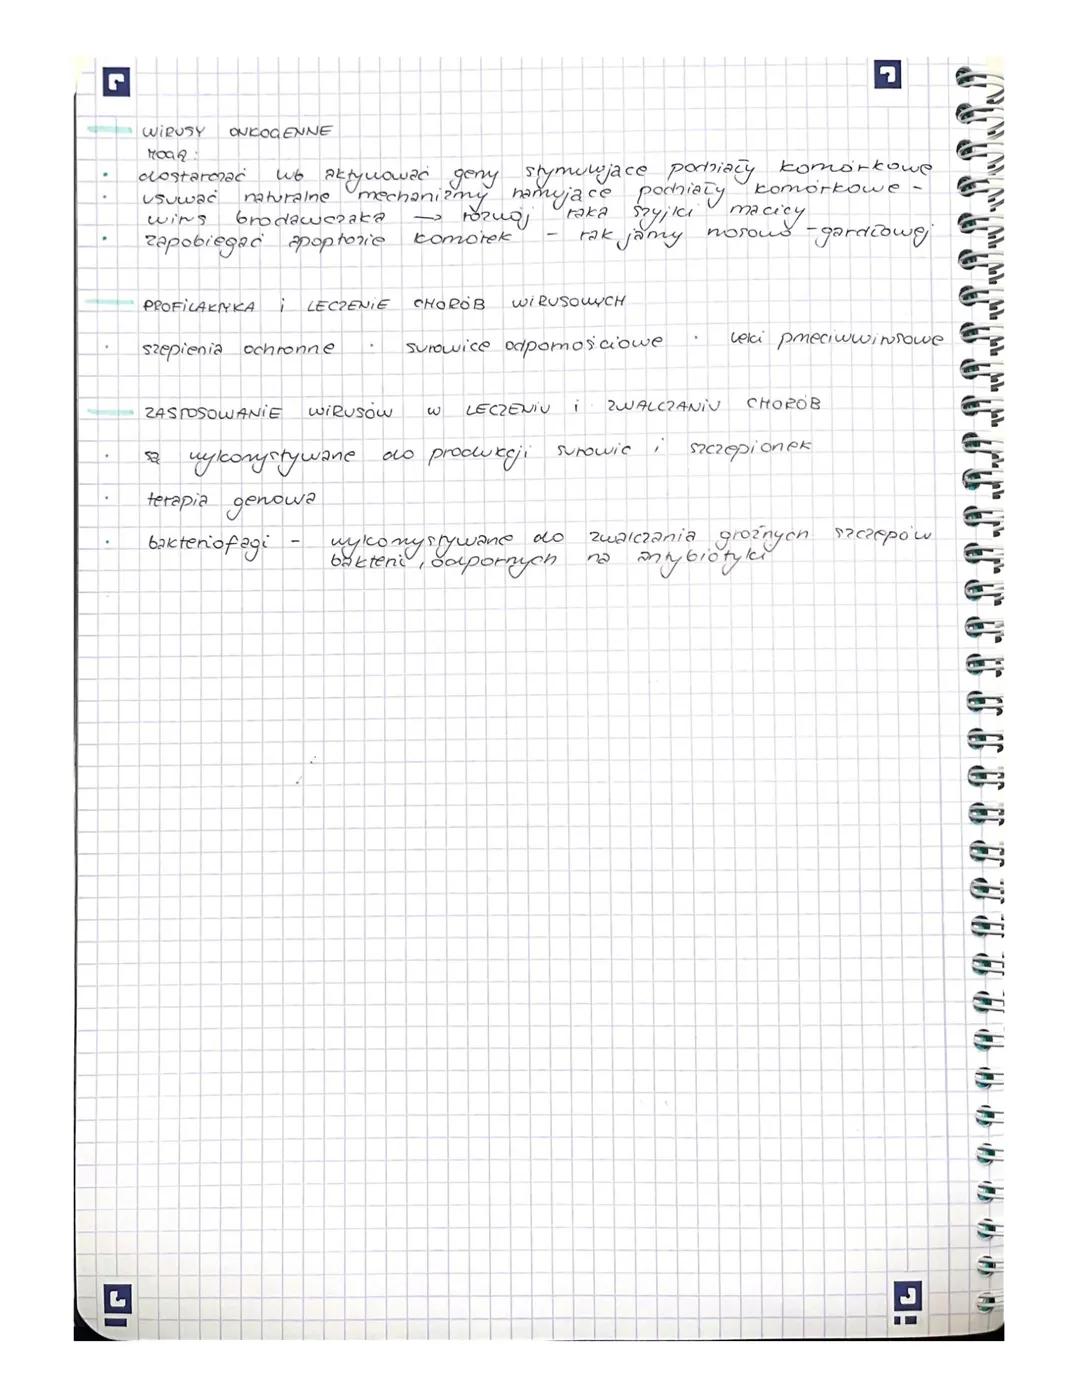 WIRUSY ONKOGENNE
MOGĄ:
• dostarczać lub aktywować geny stymulujące podziały komórkowe
• usuwać naturalne mechanizmy hamujące podziały komórkowe -
wirus brodawczaka → rozwój raka szyjki macicy
• zapobiegać apoptozie komórek - rak jamy nosowo-gardłowej
PROFILAKTYKA i LECZENIE CHORÓB WIRUSOWYCH
• szepienia ochronne • surowice odpornościowe • leki przeciwwirusowe
ZASTOSOWANIE WIRUSÓW W LECZENIU i ZWALCZANIU CHORÓB
• są wykorzystywane do produkcji surowic i szczepionek
• terapia genowa
• bakteriofagi - wykorzystywane do zwalczania groźnych szczepów
bakterii, odpornych na antybiotyki